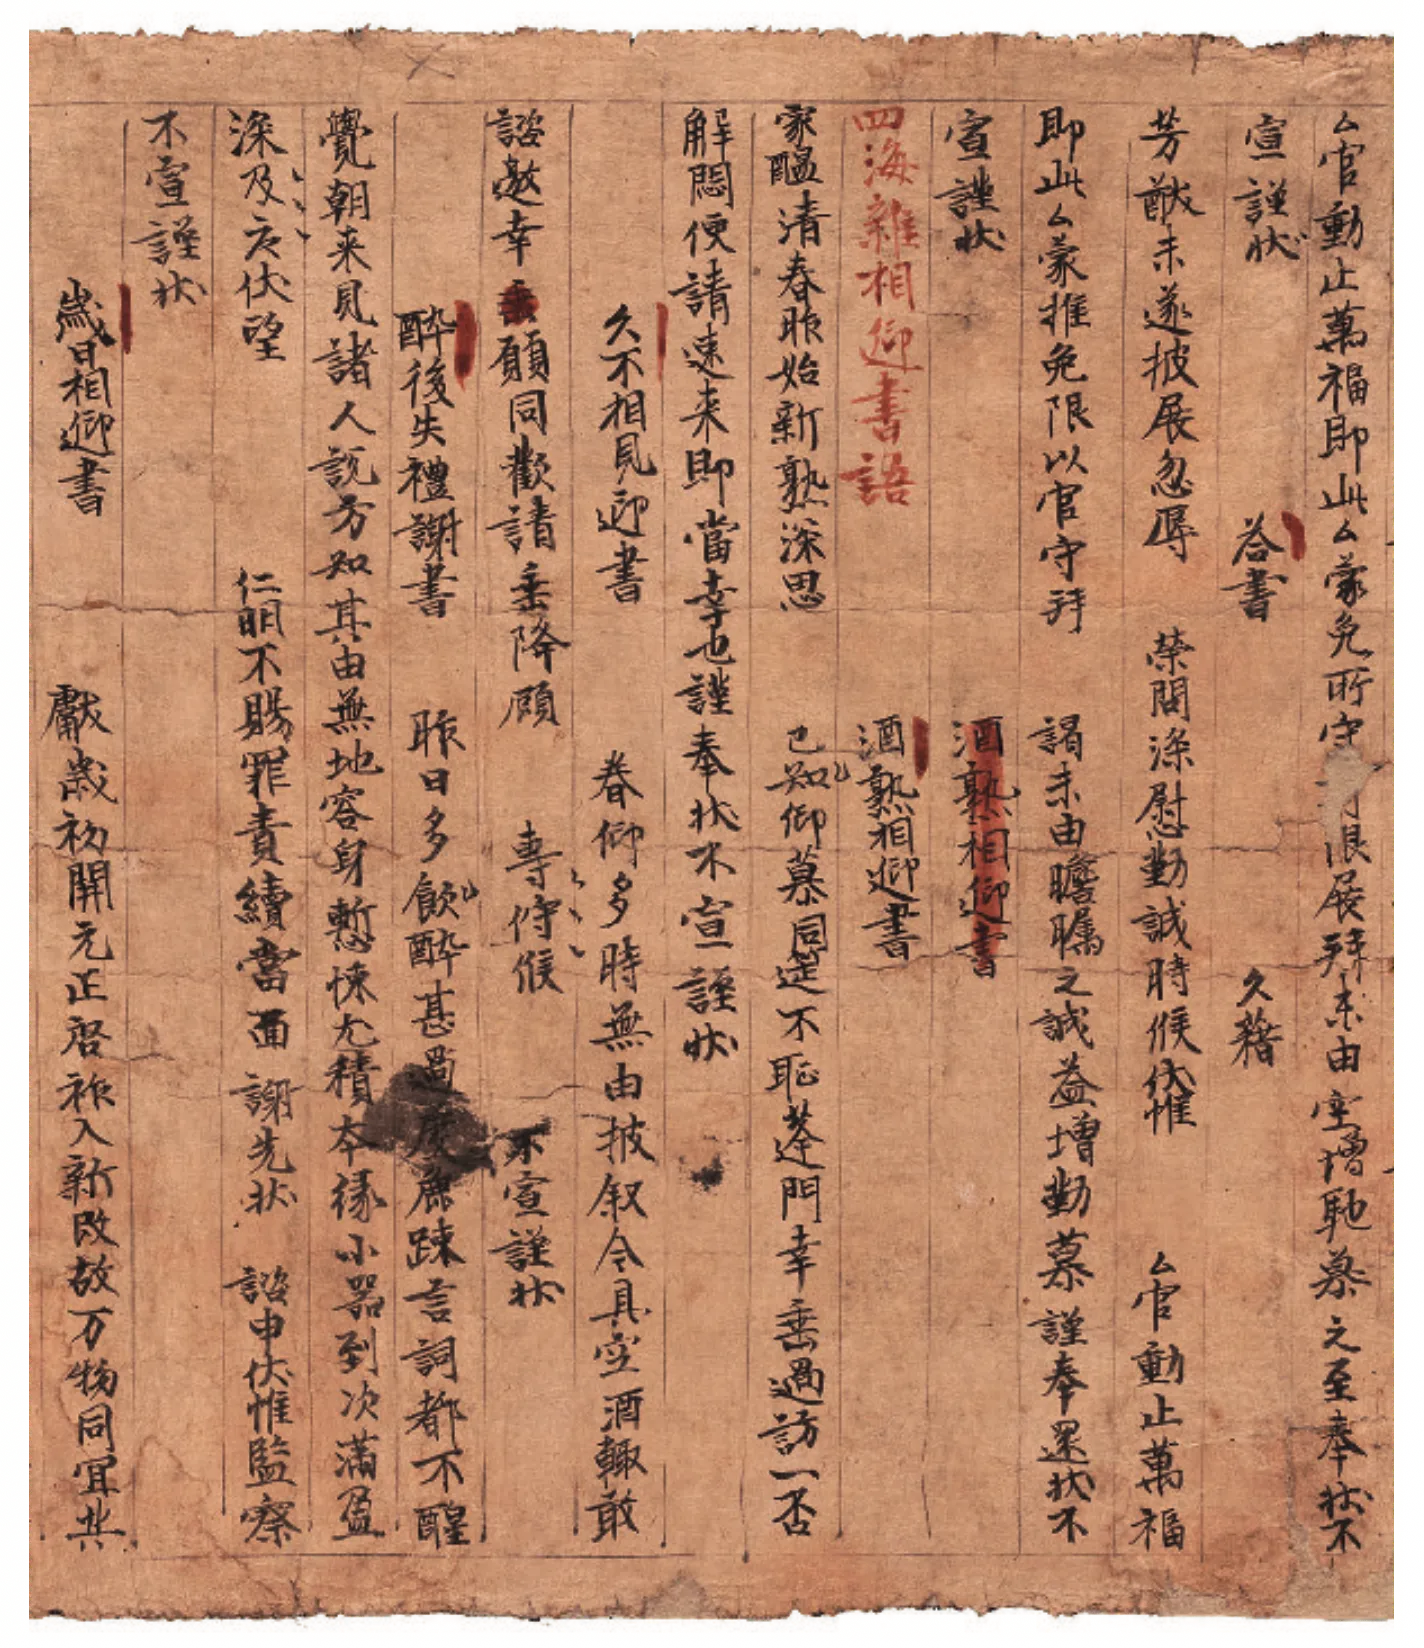 厶官動止萬福即此厶蒙免所守有限展拜未由空增馳慕之至奉狀不
宣謹狀 荅書 久藉
芳猷未遂披展忽辱 榮問深慰勤誠時候伏惟 厶官動止萬福
即此厶蒙推免限以官守拜 謁未由瞻矚之誠益增勤慕謹奉還狀不
宣謹狀 酒熟相迎書
四海雜相迎書語 酒熟相迎書
家醞清春昨始新熟深思 已知仰慕同筵不恥蓬門幸垂過訪一否
解悶便請速来即當幸也謹奉狀不宣謹狀
久不相見迎書 眷仰多時無由披叙令具空酒輙敢
諮邀幸垂願同歡請垂降顧 專佇候 不宣謹狀
酔後失禮謝書 昨日多飲酔甚過度麁踈言詞都不醒
覺朝来見諸人說方知其由無地容身慙悚尤積本緣小器到次滿盈
深及㳒伏望 仁明不賜罪責續當面 謝先狀 諮申伏惟監察
不宣謹狀
歲日相迎書 獻歲初開元正啓祚入新改故万物同冝共